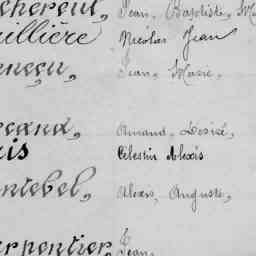 Jean, Baptiste, Ma
uillière Nicolas Jean
Jean, Marie,
Amand, Désiré,
is Célestin Alexis
ntebel, Alexis, Auguste,
arpentier, Jean,